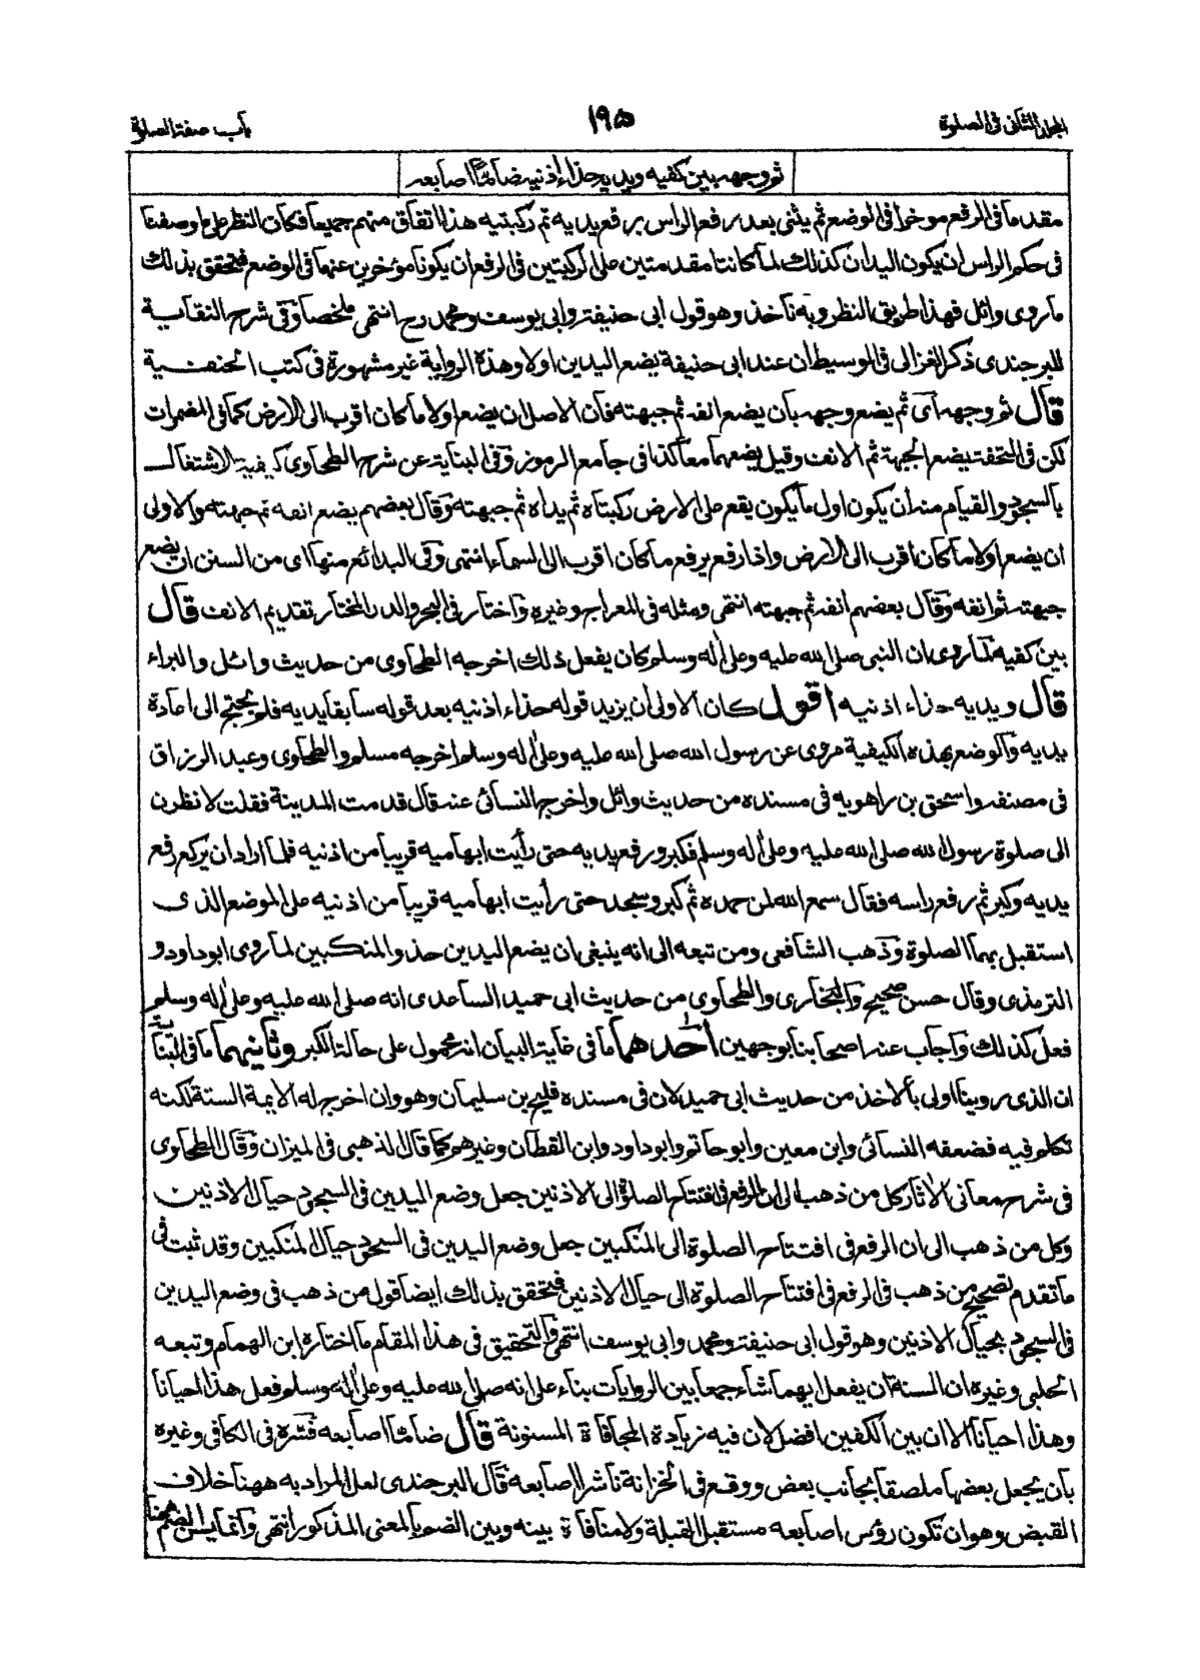 المجلد الثانى فى الصلوة
١٩٥
باب صفة الصلوة
ثم وجهه بين كفيه ويديه حذاء اذنيه ضاما اصابعه
مقدما فى الرفع موخرا فى الوضع ثم يثنى بعد رفع الراس برفع يديه ثم ركبتيه هذا اتفاق منهم جميعا فكان النظر على ما وصفنا
فى حكم الراس ان يكون اليدان كذلك لما كانتا مقدمتين على الركبتين فى الرفع ان يكونا مؤخرين عنهما فى الوضع فتحقق بذلك
ما روى وائل فهذا طريق النظر وبه ناخذ وهو قول ابى حنيفة وابى يوسف ومحمد رح انتهى ملخصا وفى شرح النقاية
للبرجندى ذكر الغزالى فى الوسيط ان عند ابى حنيفة يضع اليدين اولا وهذه الرواية غير مشهورة فى كتب الحنفية
قال ثم وجهه اى ثم يضع وجهه بان يضع انفه ثم جبهته فان الاصل ان يضع اولا ما كان اقرب الى الارض كما فى المضمرات
لكن فى التحفة يضع الجبهة ثم الانف وقيل يضعهما معا كذا فى جامع الرموز وفى البناية عن شرح الطحاوى كيفية الاشتغال
بالسجود والقيام منه ان يكون اول ما يكون يقع على الارض ركبتاه ثم يداه ثم جبهته وقال بعضهم يضع انفه ثم جبهته والاولى
ان يضع اولا ما كان اقرب الى الارض واذا رفع يرفع ما كان اقرب الى السماء انتهى وفى البدائع منها اى من السنن ان يضع
جبهته ثم انفه وقال بعضهم انفه ثم جبهته انتهى ومثله فى المعراج وغيره واختار فى البحر والدر المختار تقديم الانف قال
بين كفيه لما روى ان النبى صلى الله عليه وعلى اله وسلم كان يفعل ذلك اخرجه الطحاوى من حديث وائل والبراء
قال ويديه حذاء اذنيه اقول كان الاولى ان يزيد قوله حذاء اذنيه بعد قوله سابقا يديه فلم يحتج الى اعادة
يديه والوضع بهذه الكيفية مروى عن رسول الله صلى الله عليه وعلى اله وسلم اخرجه مسلم والطحاوى وعبد الرزاق
فى مصنفه واسحق بن راهويه فى مسنده من حديث وائل واخرج النسائى عنه قال قدمت المدينة فقلت لانظرن
الى صلوة رسول الله صلى الله عليه وعلى اله وسلم فكبر ورفع يديه حتى رأيت ابهاميه قريبا من اذنيه فلما اراد ان يركع رفع
يديه وكبر ثم رفع راسه فقال سمع الله لمن حمده ثم كبر وسجد حتى رأيت ابهاميه قريبا من اذنيه على الموضع الذى
استقبل بهما الصلوة وذهب الشافعى ومن تبعه الى انه ينبغى ان يضع اليدين حذو المنكبين لما روى ابو داود و
الترمذى وقال حسن صحيح والبخارى والطحاوى من حديث ابى حميد الساعدى انه صلى الله عليه وعلى اله وسلم
فعل كذلك واجاب عنه اصحابنا بوجهين احدهما ما فى غاية البيان انه محمول على حالة الكبر وثانيهما ما فى البناية
ان الذى روينا اولى بالاخذ من حديث ابى حميد لان فى مسنده فليح بن سليمان وهو وان اخرج له الايمة الستة لكنه
تكلم فيه فضعفه النسائى وابن معين وابو حاتم وابو داود وابن القطان وغيرهم كما قال الذهبى فى الميزان وقال الطحاوى
فى شرح معانى الاثار كل من ذهب الى ان الرفع فى افتتاح الصلوة الى الاذنين جعل وضع اليدين فى السجود حيال الاذنين
وكل من ذهب الى ان الرفع فى افتتاح الصلوة الى المنكبين جعل وضع اليدين فى السجود حيال المنكبين وقد ثبت فى
ما تقدم تصحيح من ذهب فى الرفع فى افتتاح الصلوة الى حيال الاذنين فتحقق بذلك ايضا قول من ذهب فى وضع اليدين
فى السجود بحيال الاذنين وهو قول ابى حنيفة ومحمد وابى يوسف انتهى والتحقيق فى هذا المقام ما اختاره ابن الهمام وتبعه
الحلبى وغيره ان السنة ان يفعل ايهما شاء جمعا بين الروايات بناء على انه صلى الله عليه وعلى اله وسلم فعل هذا احيانا
وهذا احيانا الا ان بين الكفين افضل لان فيه زيادة المجافاة المسنونة قال ضاما اصابعه فسره فى الكافى وغيره
بان يجعل بعضها ملصقا بجانب بعض ووقع فى الخزانة ناشرا اصابعه قال البرجندى لعل المراد به ههنا خلاف
القبض وهو ان تكون رؤس اصابعه مستقبل القبلة ولا منافاة بينه وبين الضم بالمعنى المذكور انتهى وانما يسن الضم ههنا